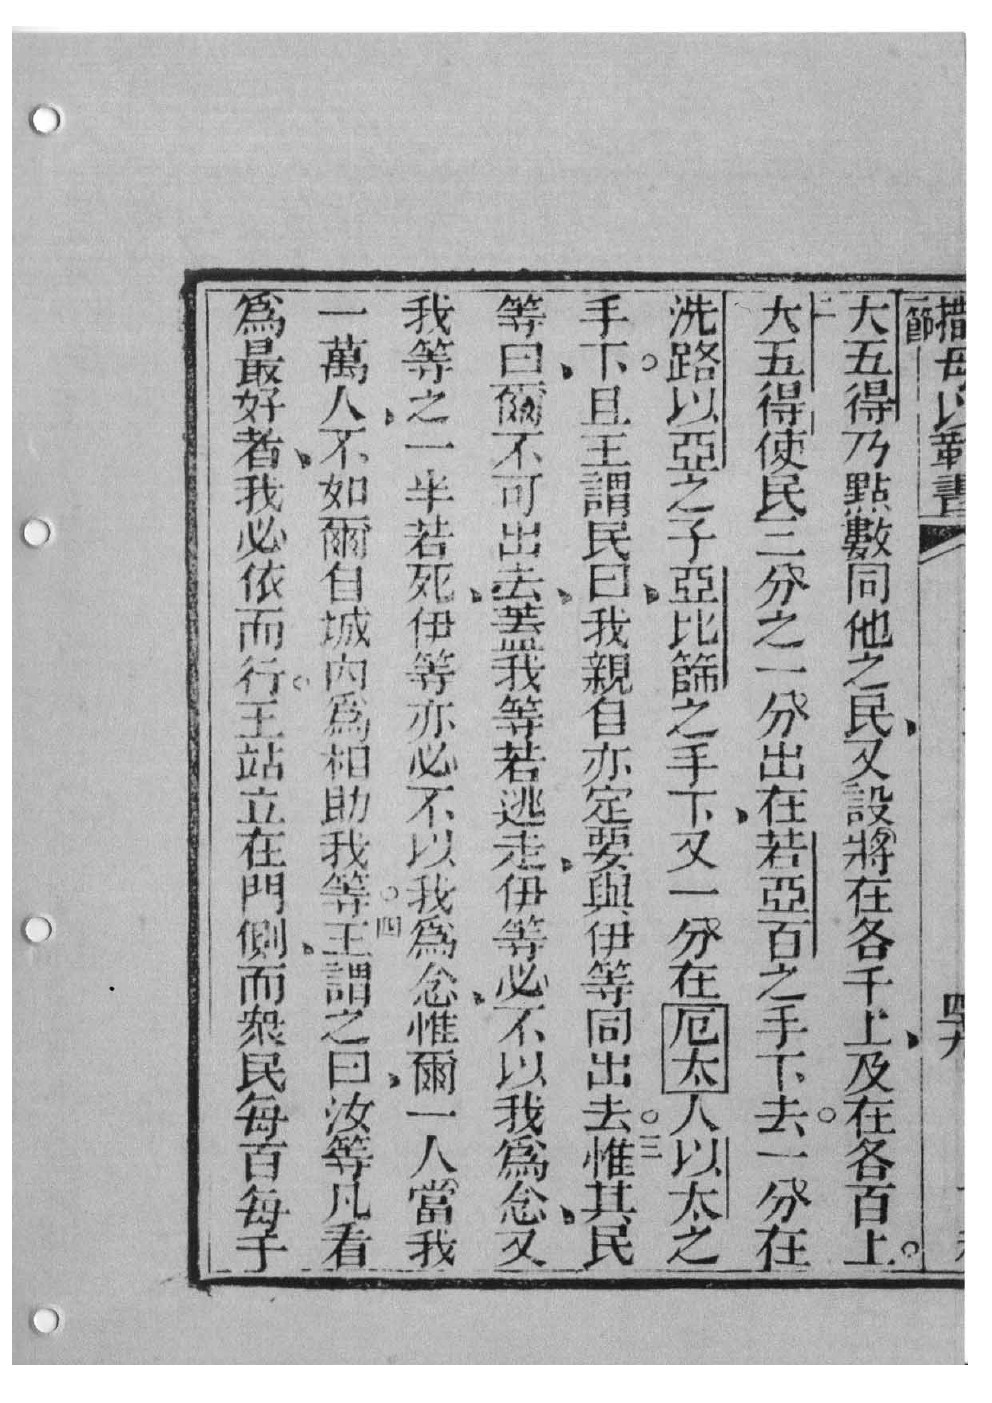 撒母以勒書
一節
四九
大五得乃點數同他之民、又設將在各千上、及在各百上。
二大五得使民三分之一分出在若亞百之手下去。一分在
洗路以亞之子亞比篩之手下、又一分在厄太人以太之
手下。且王謂民曰、我親自亦定要與伊等同出去。三惟其民
等曰、爾不可出去、蓋我等若逃走、伊等必不以我為念、又
我等之一半若死、伊等亦必不以我為念、惟爾一人當我
一萬人、不如爾自城內為相助我等。四王謂之曰、汝等凡看
為最好者、我必依而行。王站立在門側、而衆民每百每千